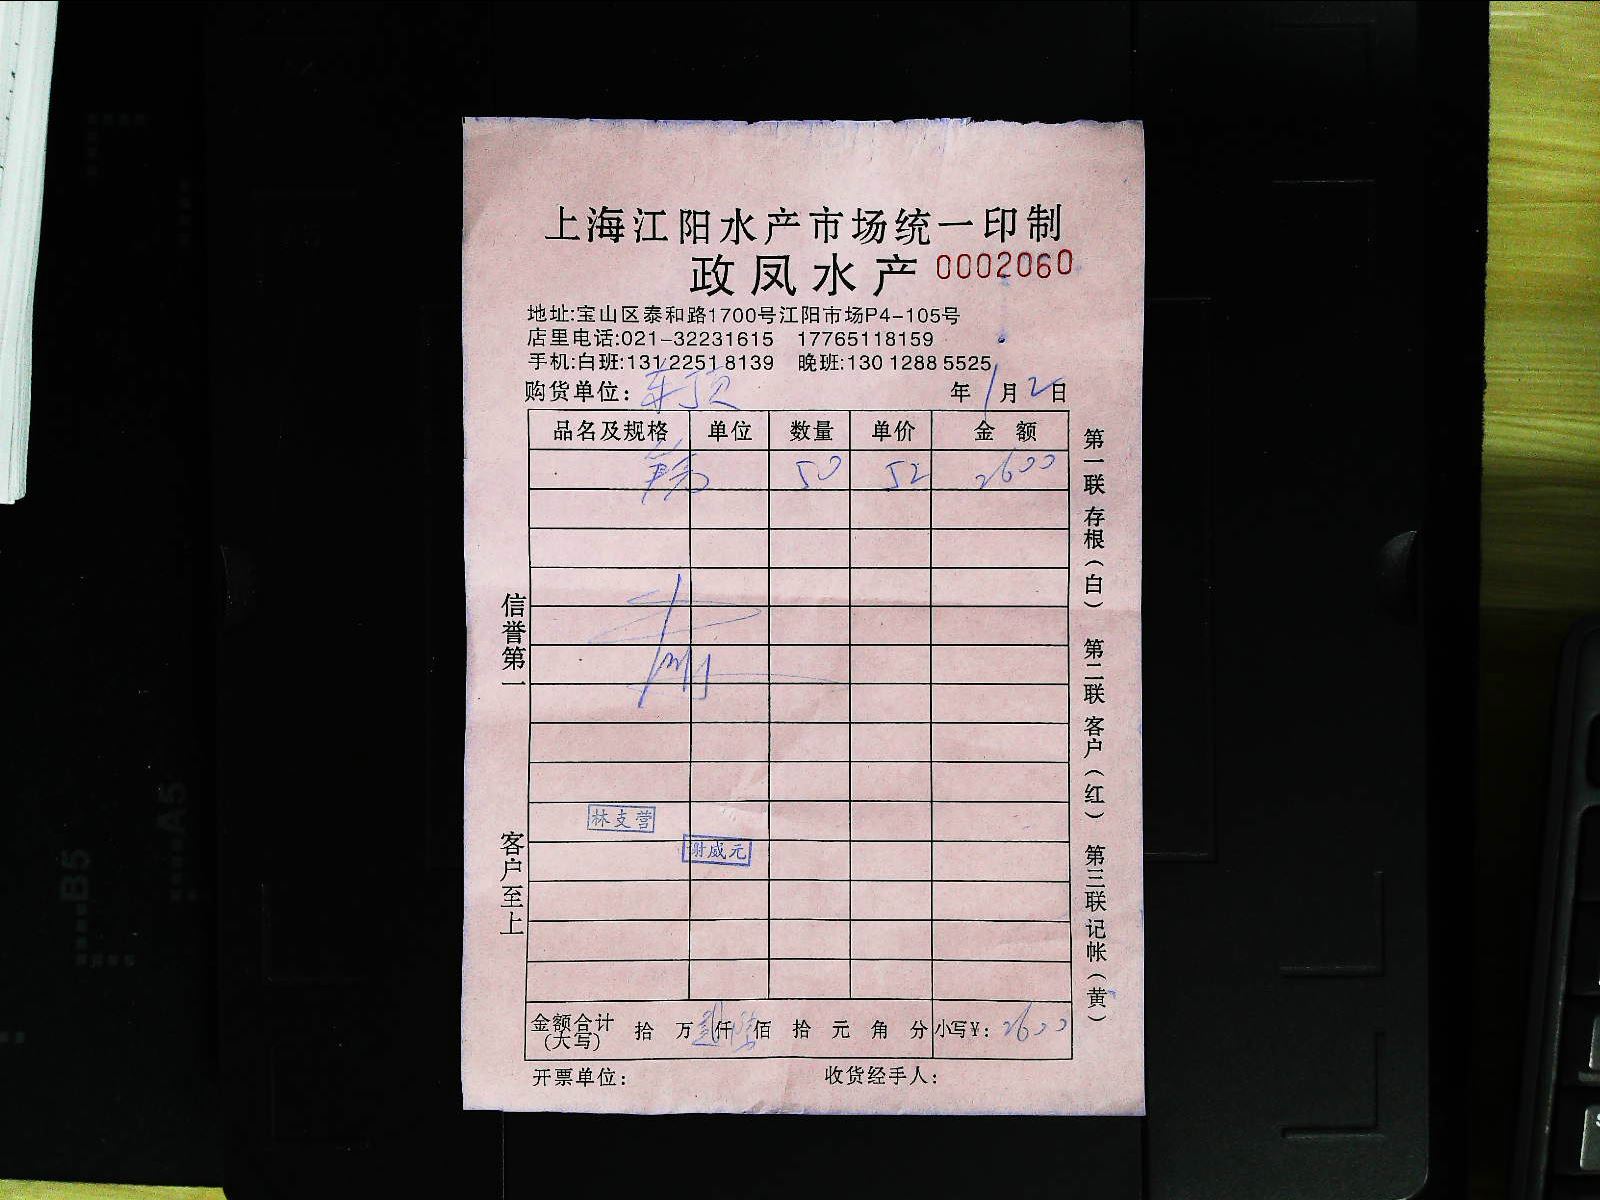 上海江阳水产市场统一印制
政凤水产 0002060
地址:宝山区泰和路1700号江阳市场P4-105号
店里电话:021-32231615 17765118159
手机:白班:131 2251 8139 晚班:130 1288 5525
购货单位: 年 1 月 2 日
品名及规格 单位 数量 单价 金 额
50 52 2600
信誉第一
客户至上
林支营
谢威元
第一联 存根(白) 第二联 客户(红) 第三联 记帐(黄)
金额合计(大写) 拾 万 贰仟 陆佰 拾 元 角 分 小写¥: 2600
开票单位: 收货经手人:
B5
A5